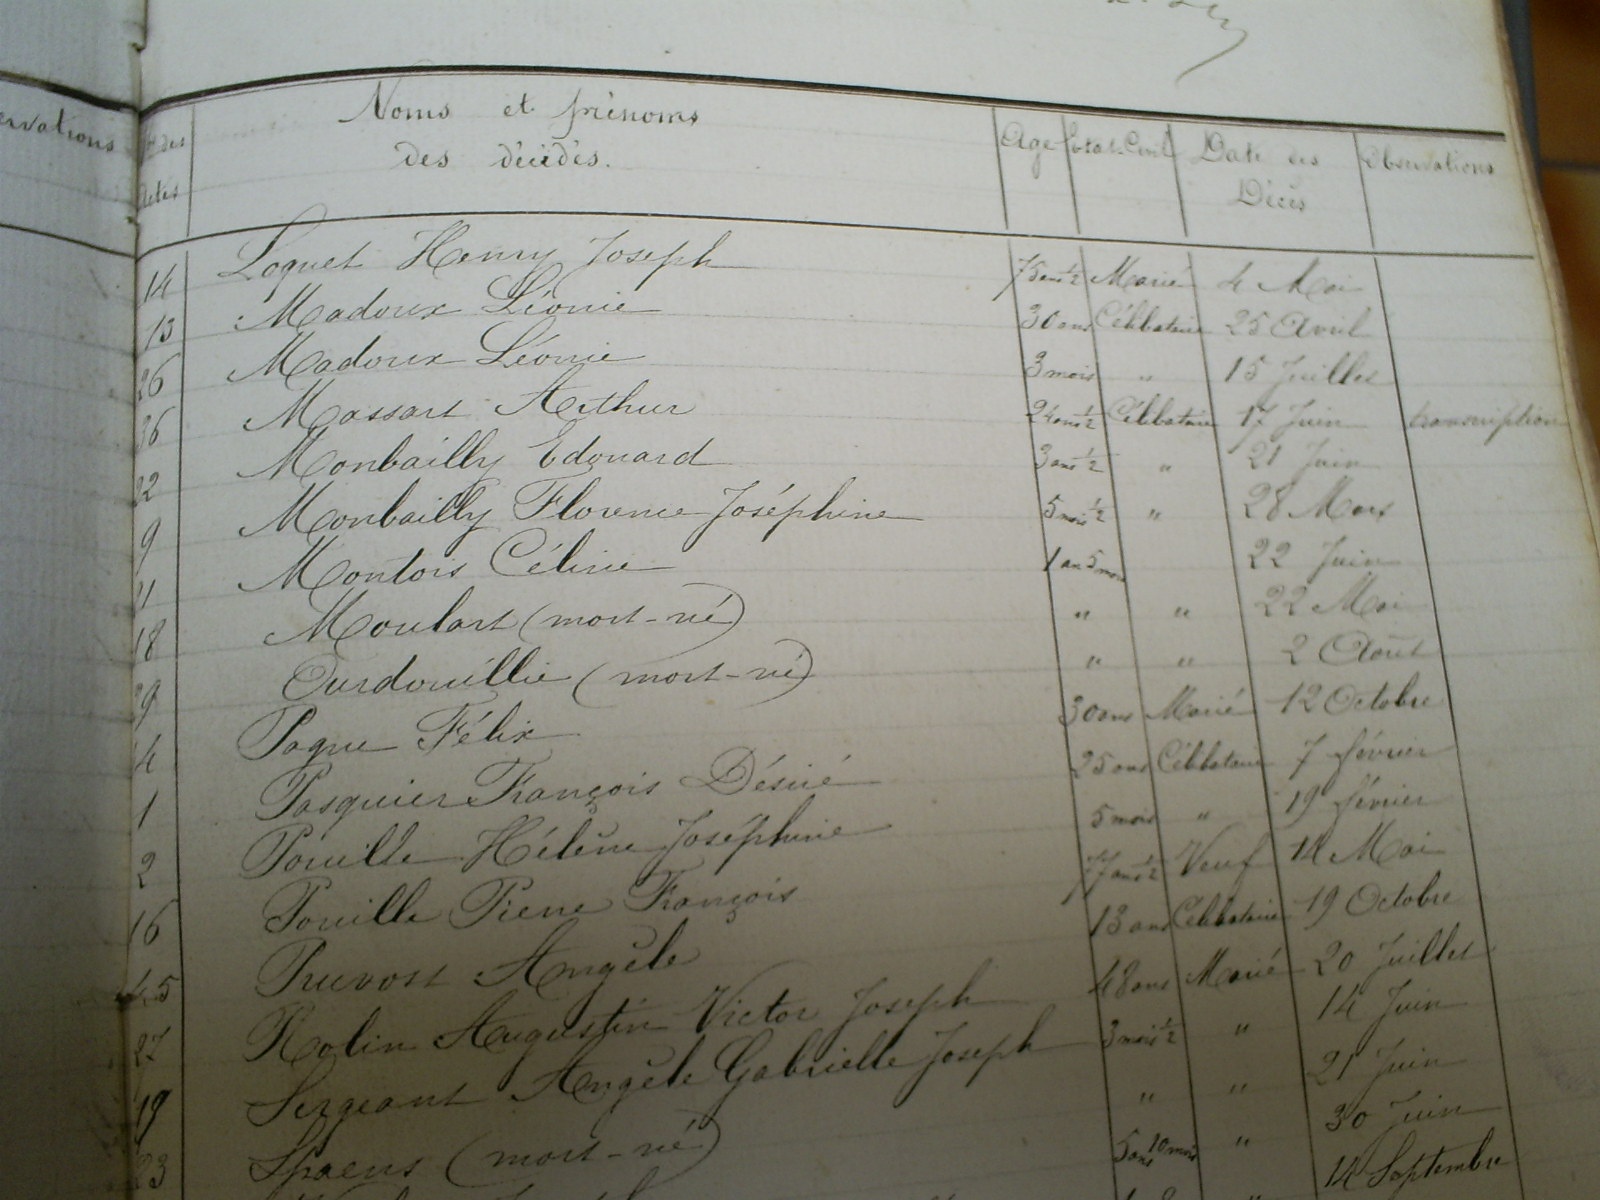 Observations
Nos des Actes Noms et prénoms des décédés. Age Etat-Civil Date des Décès Observations
14 Loquet Henry Joseph 75 ans 1/2 Marié 4 Mai
13 Madoux Léonie 30 ans Célibataire 25 Avril
26 Madoux Léonie 3 mois " 15 Juillet
36 Massart Arthur 24 ans 1/2 Célibataire 17 Juin transcription
22 Monbailly Edouard 3 ans 1/2 " 21 Juin
9 Monbailly Florence Joséphine 5 mois 1/2 " 28 Mars
21 Montois Céline 1 an 5 mois 22 Juin
18 Moulart (mort-né) " " 22 Mai
29 Ourdouillie (mort-né) " " 2 Août
4 Paque Félix 30 ans Marié 12 Octobre
1 Pasquier François Désiré 25 ans Célibataire 7 février
2 Pouille Hélène Joséphine 5 mois " 19 février
16 Pouille Pierre François 77 ans 1/2 Veuf 14 Mai
45 Pruvost Angèle 13 ans Célibataire 19 Octobre
27 Rolin Augustin Victor Joseph 48 ans Marié 20 Juillet
19 Sergeant Angèle Gabrielle Joseph 3 mois 1/2 " 14 Juin
23 Spaens (mort-né) " " 21 Juin
5 ans 10 mois " 30 Juin
14 Septembre